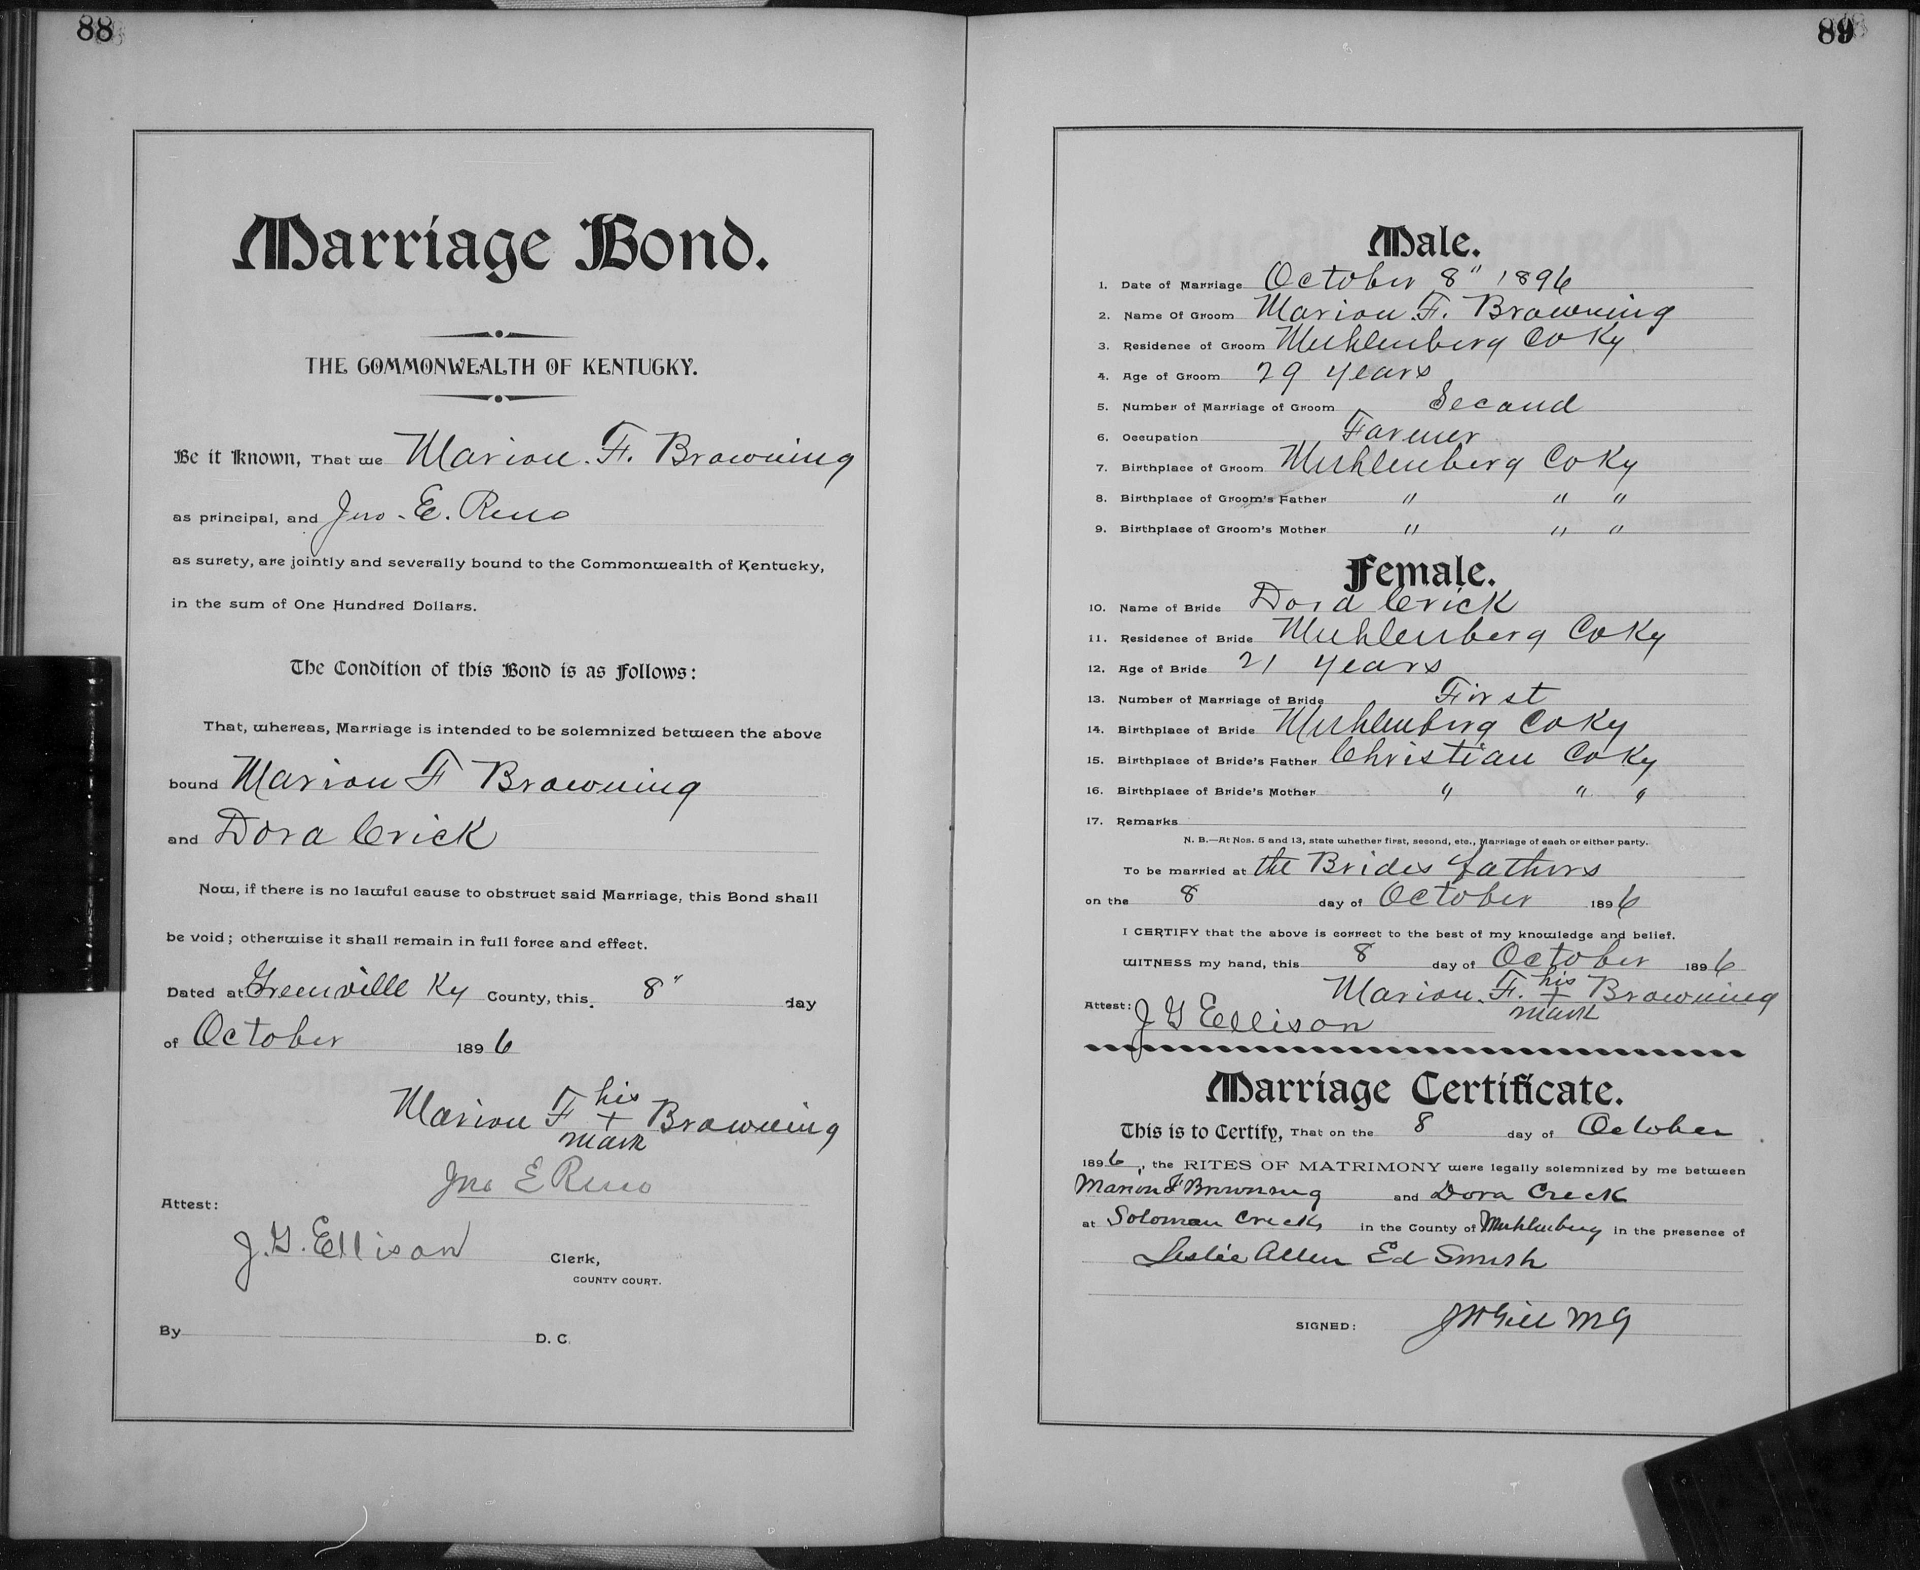 88
Marriage Bond.
THE COMMONWEALTH OF KENTUCKY.
Be it Known, That we Marion. F. Browning
as principal, and Jno. E. Reno
as surety, are jointly and severally bound to the Commonwealth of Kentucky,
in the sum of One Hundred Dollars.
The Condition of this Bond is as Follows:
That, whereas, Marriage is intended to be solemnized between the above
bound Marion F Browning
and Dora Crick
Now, if there is no lawful cause to obstruct said Marriage, this Bond shall
be void; otherwise it shall remain in full force and effect.
Dated at Greenville Ky County, this 8" day
of October 1896
his
Marion F + Browning
mark
Jno E Reno
Attest:
J. G. Ellison Clerk,
COUNTY COURT.
By D. C.
89
Male.
1. Date of Marriage October 8" 1896
2. Name Of Groom Marion F. Browning
3. Residence of Groom Muhlenberg Co Ky
4. Age of Groom 29 years
5. Number of Marriage of Groom Second
6. Occupation Farmer
7. Birthplace of Groom Muhlenberg Co Ky
8. Birthplace of Groom's Father " " "
9. Birthplace of Groom's Mother " " "
Female.
10. Name of Bride Dora Crick
11. Residence of Bride Muhlenberg Co Ky
12. Age of Bride 21 years
13. Number of Marriage of Bride First
14. Birthplace of Bride Muhlenberg Co Ky
15. Birthplace of Bride's Father Christian Co Ky
16. Birthplace of Bride's Mother " " "
17. Remarks
N. B.—At Nos. 5 and 13, state whether first, second, etc., Marriage of each or either party.
To be married at the Brides fathers
on the 8 day of October 1896
I CERTIFY that the above is correct to the best of my knowledge and belief.
WITNESS my hand, this 8 day of October 1896
his
Marion. F. + Browning
mark
Attest: J G Ellison
Marriage Certificate.
This is to Certify, That on the 8 day of October
1896, the RITES OF MATRIMONY were legally solemnized by me between
Marion F Browning and Dora Creck
at Soloman Crecks in the County of Muhlenberg in the presence of
Leslie Allen Ed Smith
SIGNED: J W Gill M G